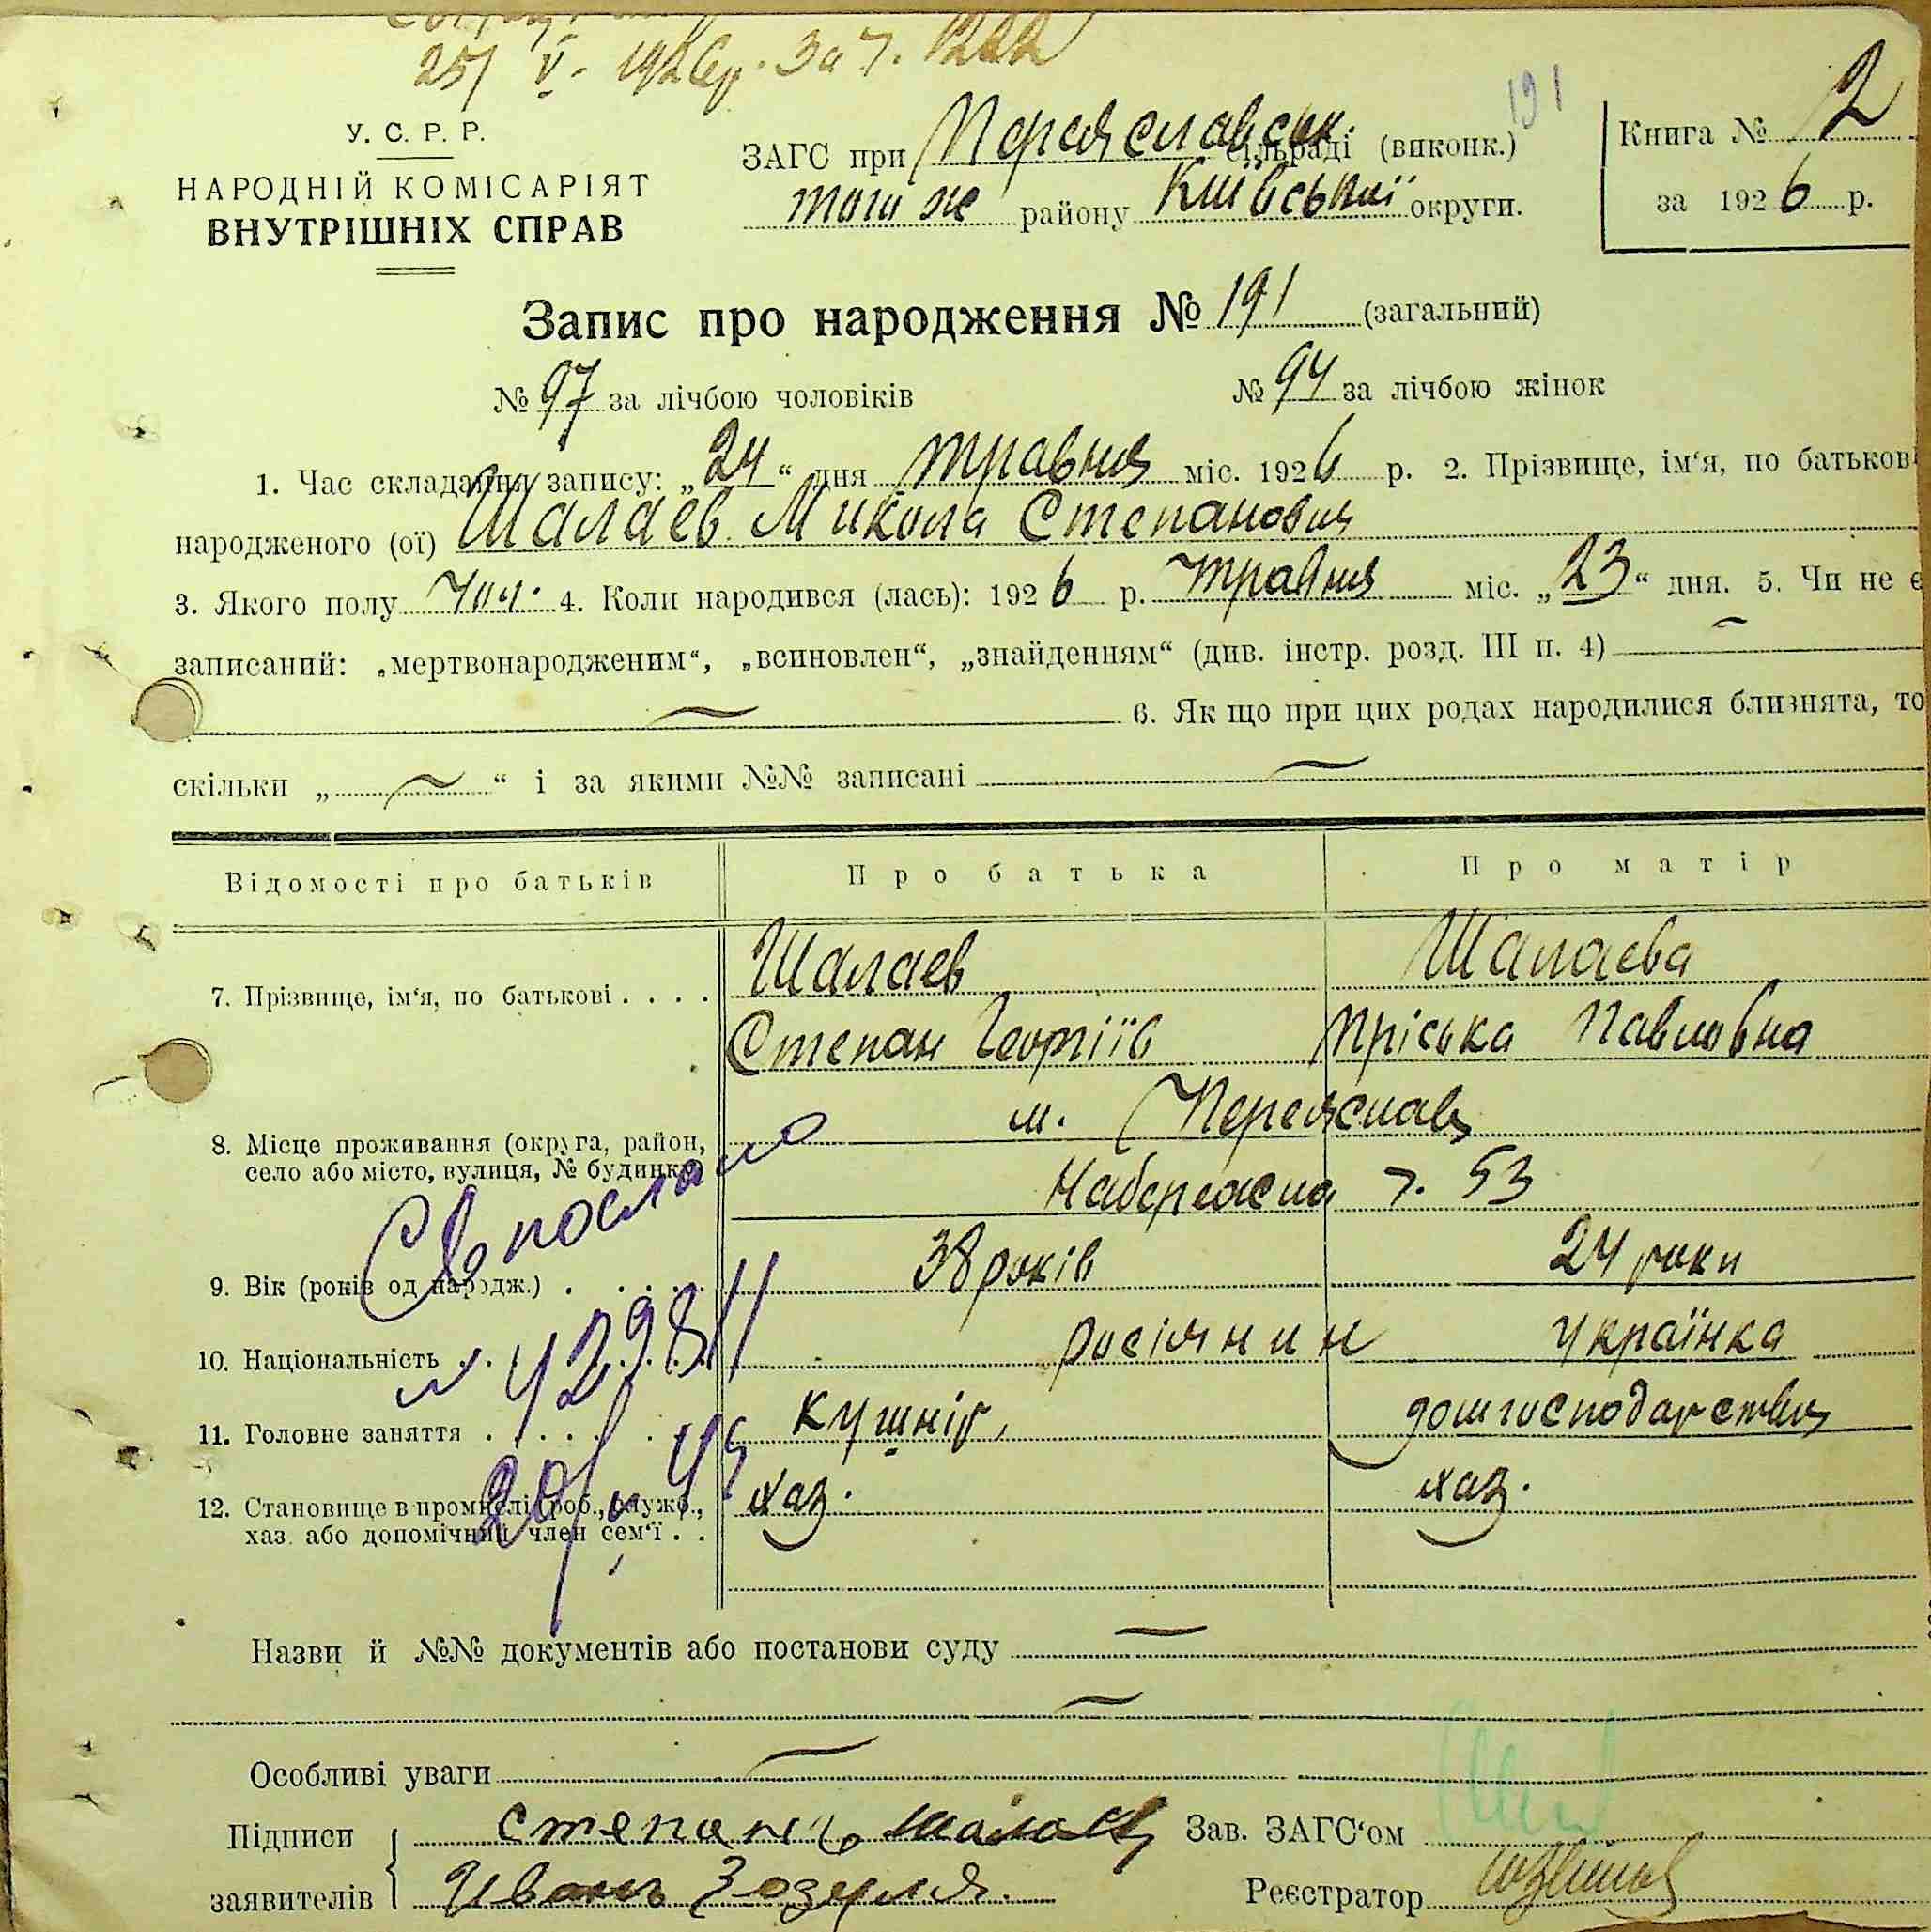 25/V - 1926р. За ч. 1222
191
У. С. Р. Р.
НАРОДНІЙ КОМІСАРІЯТ
ВНУТРІШНІХ СПРАВ
ЗАГС при Переяславськ. сільраді (виконк.)
того же району Київської округи.
Книга № 2
за 1926 р.
Запис про народження № 191 (загальний)
№ 97 за лічбою чоловіків № 94 за лічбою жінок
1. Час складання запису: „24“ дня травня міс. 1926 р. 2. Прізвище, ім‘я, по батькові
народженого (ої) Шалаев Микола Степанович
3. Якого полу чол. 4. Коли народився (лась): 1926 р. травня міс. „23“ дня. 5. Чи не є
записаний: „мертвонародженим“, „всиновлен“, „знайденням“ (див. інстр. розд. III п. 4) —
— 6. Як що при цих родах народилися близнята, то
скільки „—“ і за якими №№ записані —
Відомості про батьків Про батька Про матір
7. Прізвище, ім‘я, по батькові . . . . Шалаев Шалаева
Степан Георгіїв Пріська Павловна
8. Місце проживання (округа, район,
село або місто, вулиця, № будинку)
м. Переяслав
Набережна ч. 53
Св послано
9. Вік (років од народж.) . . . . . 38 років 24 роки
10. Національність . . . . росіянин українка
11. Головне заняття . . . . . кушнір, домгосподарство
12. Становище в промислі (роб., служб.,
хаз. або допомічний член сем‘ї . . хаз. хаз.
Назви й №№ документів або постанови суду —
—
Особливі уваги —
Підписи Степанъ Шалаев Зав. ЗАГС‘ом
заявителів Иванъ Зозуля. Реєстратор